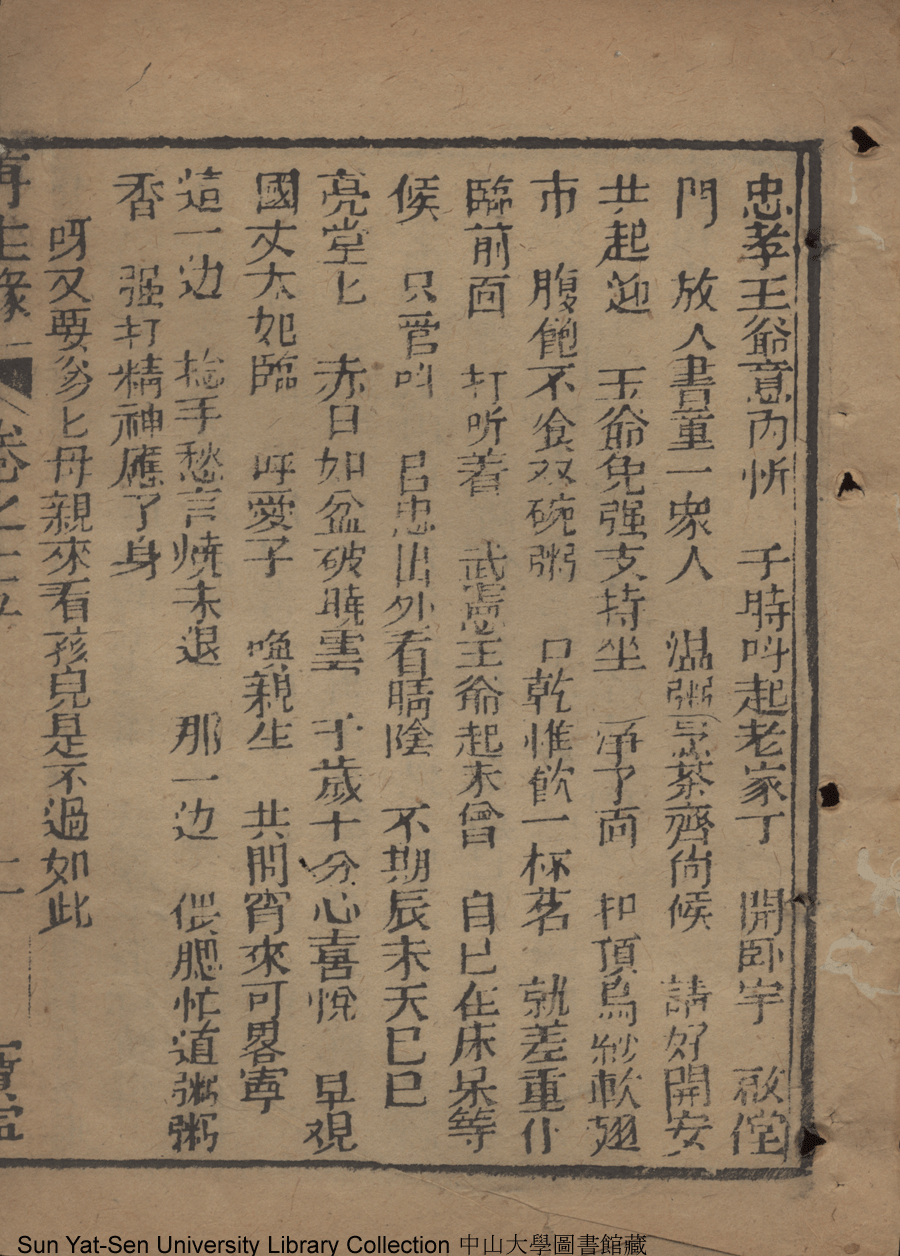 忠孝王爺意內忻　千時呌起老家丁　開卧宇　啟堂
門　放人書童一衆人　温粥烹茶齊伺候　請好開安
共起迎　王爺免强支持坐　淨了面　扣頂烏紗軟翅
巾　腹飽不飡双碗粥　口乾惟飲一杯茗　就差重仆
臨前面　打听着　武憲王爺起未曾　自己在床呆等
候　只管呌　呂忠出外看晴陰　不期辰未天已巳
亮堂匕　赤日如盆破曉雲　千歲十分心喜悅　早观
國丈太妃臨　呼愛子　喚親生　共問宵來可畧寧
這一边　拖手愁言燒未退　那一边　偎腮忙道粥粥
香　强打精神應了身
呀又要爹匕母親來看孩兒是不過如此
再生緣　卷之十五　十一　寶寧
Sun Yat-Sen University Library Collection 中山大學圖書館藏